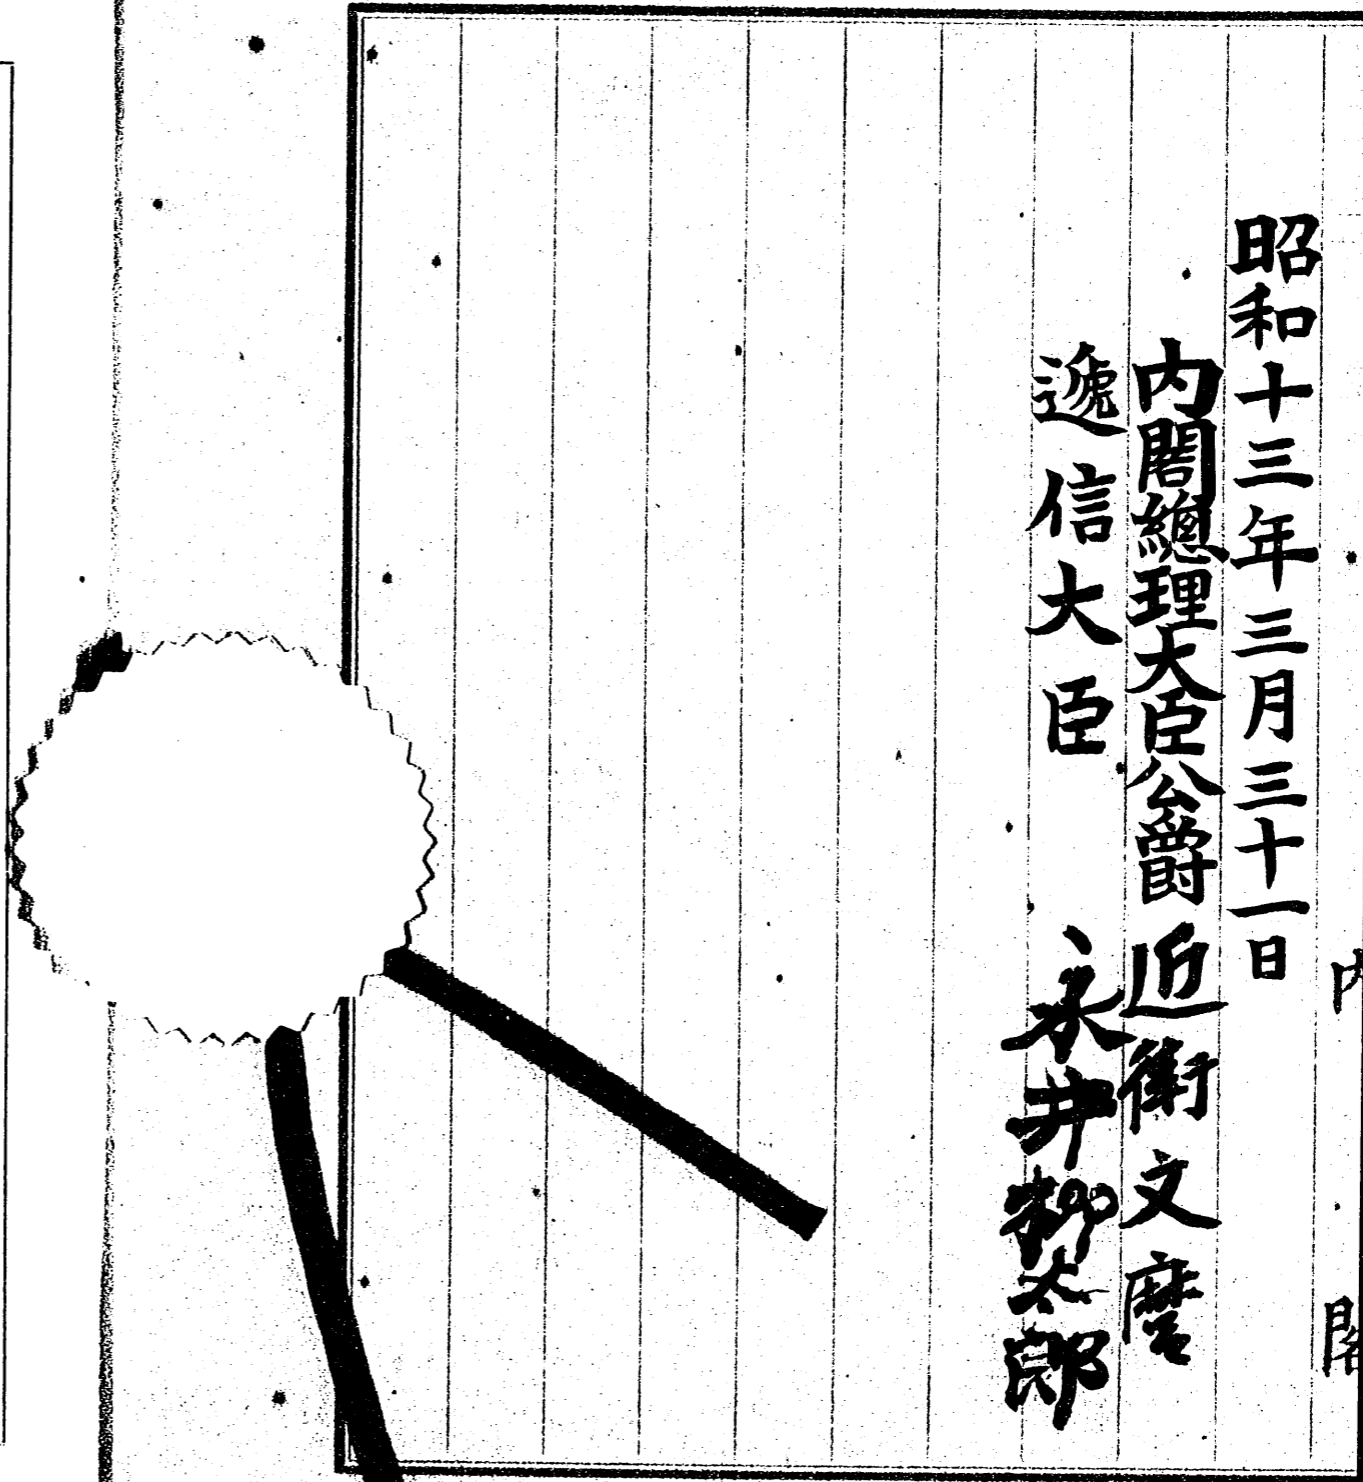 内閣
昭和十三年三月三十一日
内閣總理大臣公爵 近衞文麿
遞信大臣 永井柳太郎